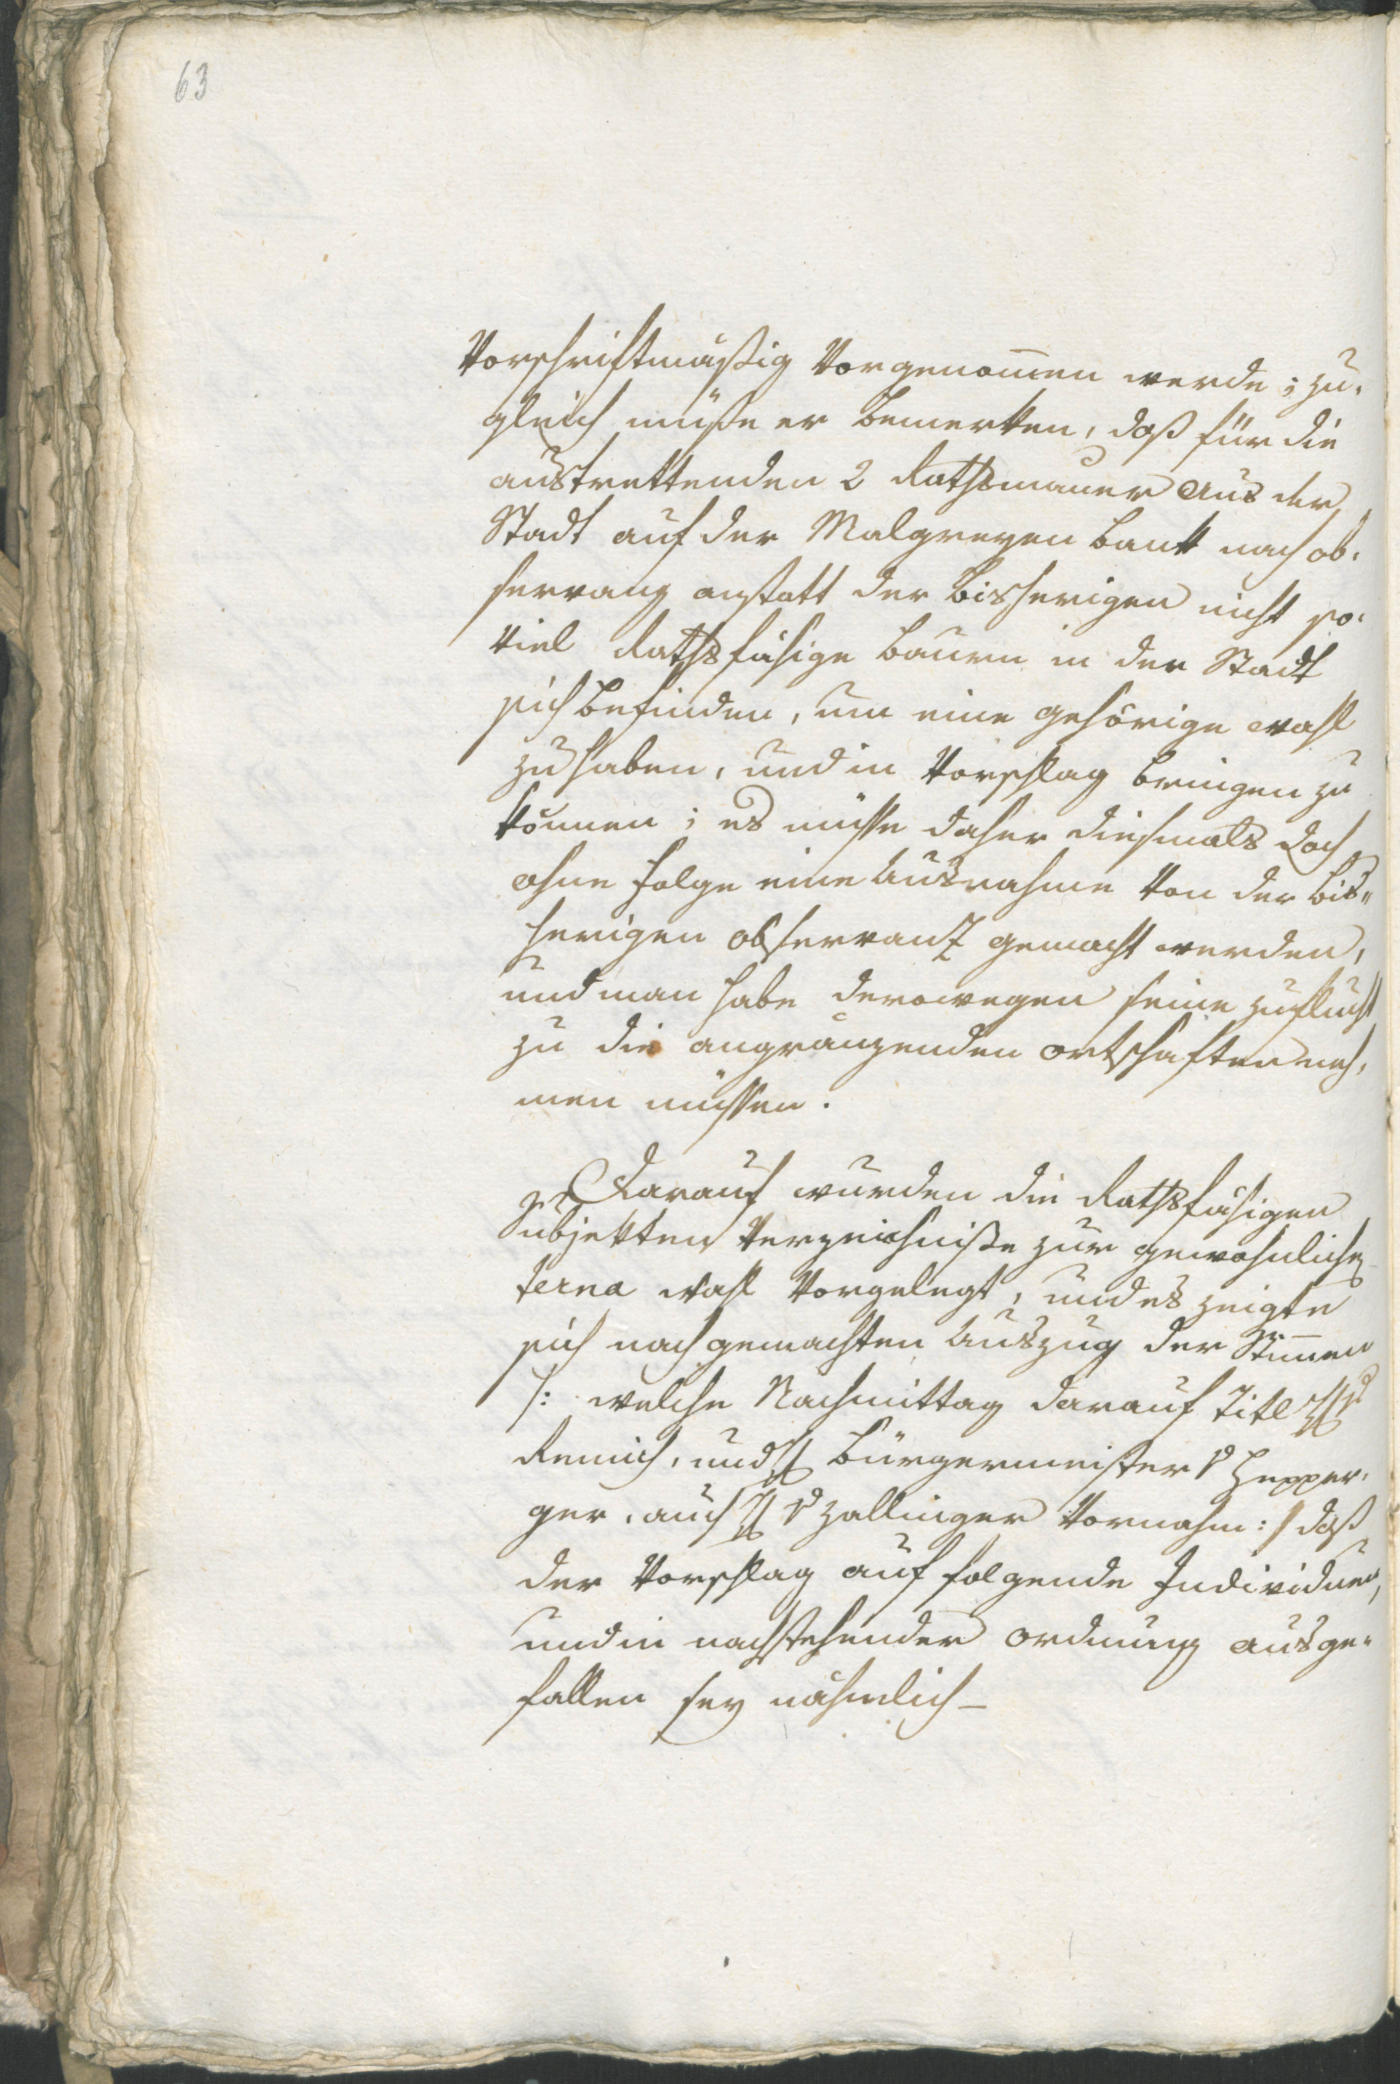 63
Vorschriftmäßig Vorgenom̄en werde; zu¬
gleich müße er bemerken, daß für die
austrettenden 2 Rathsmäner aus der
Stadt auf der Malgreyen bank nach ob¬
servanz anstatt der bisherigen nicht so¬
viel Rathsfähige bauern in der Stadt
sich befinden, um eine gehörige wahl
zu haben, und in Vorschlag bringen zu
können; es müsse daher dießmals doch
ohne folge eine Ausnahme von der bis¬
herigen observanz gemacht werden,
und man habe derowegen seine zuflucht
zu die angränzenden ortschaften neh¬
men müssen.
Darauf wurden die Rathsfähigen
Subjekten Verzeichniße zur gewohnlichen
terna wahl Vorgelegt, und es zeigte
sich nach gemachten Auszug der Stim̄en
/: welche Nachmittag darauf Titl H v
Remich, und H Bürgermeister v Hepper¬
ger, auch H v Zallinger Vornahm :/ daß
der Vorschlag auf folgende Individuen,
und in nachstehender ordnung ausge¬
fallen sey nähmlich –